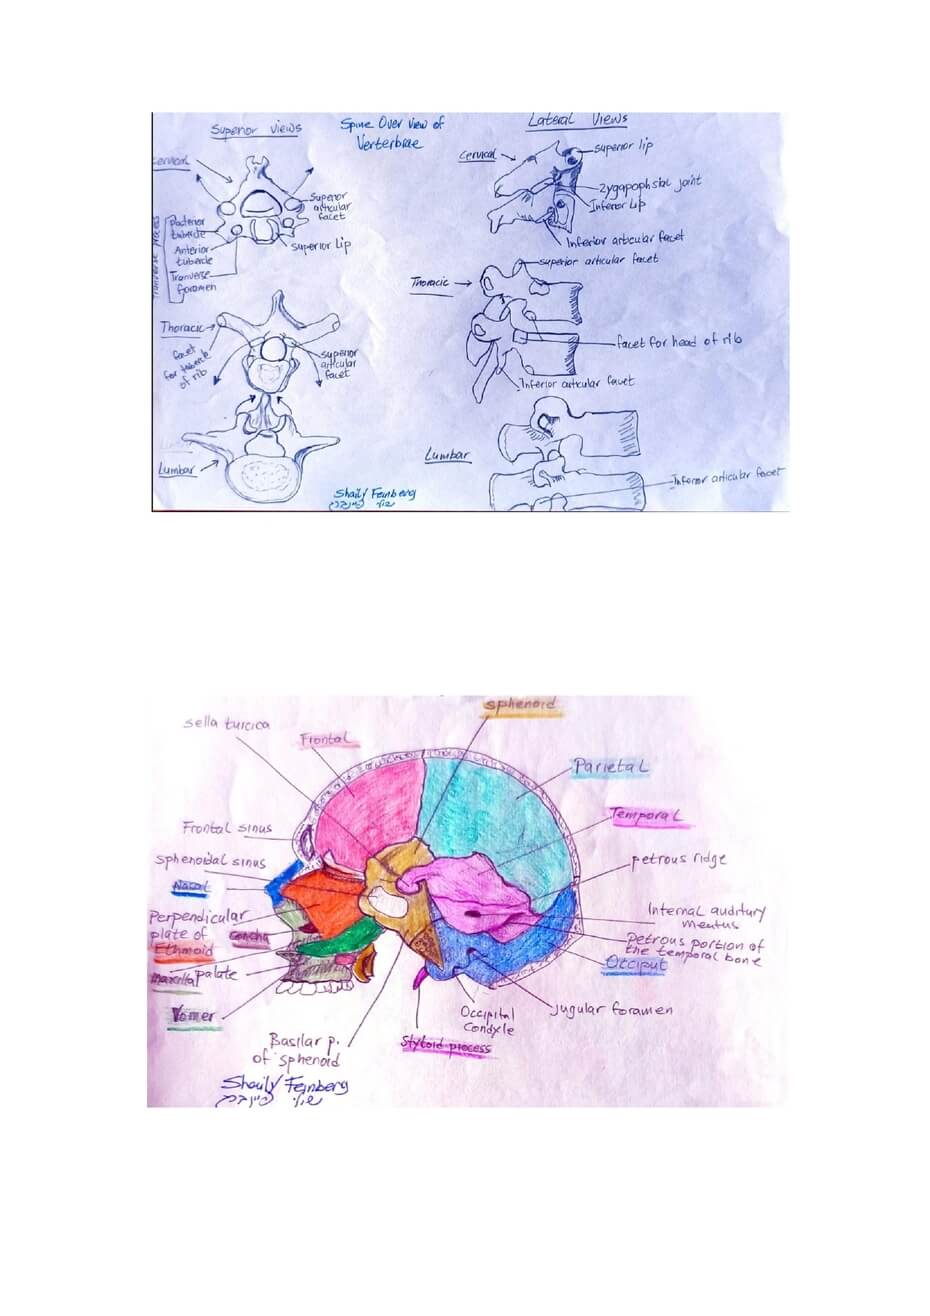 Superior views
Spine Over view of
Verterbrae
Lateral Views
Cervical
Superior
articular
facet
Posterior
tubercle
Anterior
tubercle
Tranverse
foramen
Superior lip
Thoracic
facet
for tubercle
of rib
superior
articular
facet
Lumbar
Shaily Feinberg
שיילי פיינברג
Cervical
superior lip
Zygapophsial joint
Inferior Lip
Inferior articular facet
superior articular facet
Thoracic
facet for head of rib
Inferior articular facet
Lumbar
Inferior articular facet
sella turcica
Frontal
sphenoid
Parietal
Temporal
Frontal sinus
petrous ridge
sphenoidal sinus
Nasal
Internal auditury
meatus
Perpendicular
plate of
concha
Ethmoid
Petrous portion of
the temporal bone
Occiput
Maxillal
palate
Vomer
Occipital
Condyle
Jugular foramen
Basilar p.
of sphenoid
Styloid process
Shaily Feinberg